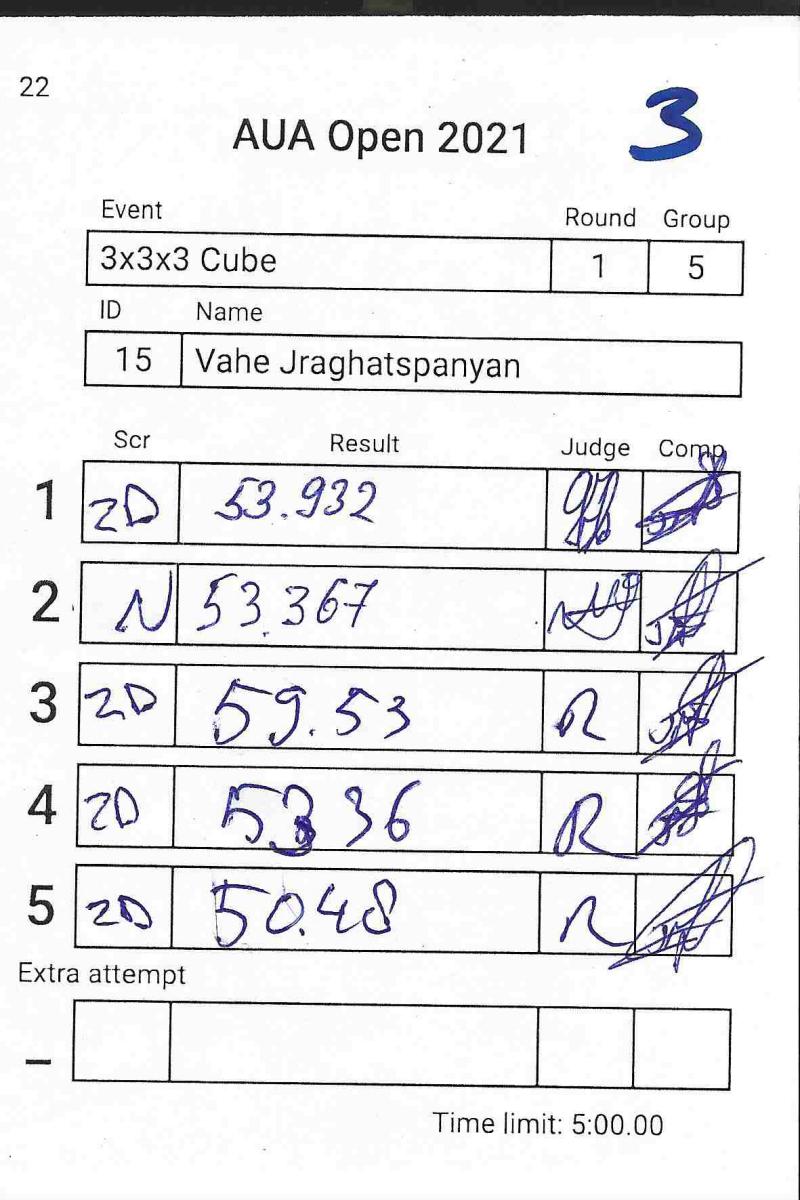 22
3
AUA Open 2021
Event Round Group
3x3x3 Cube 1 5
ID Name
15 Vahe Jraghatspanyan
Scr Result Judge Comp
1 ZD 53.932
2 N 53.367
3 ZD 59.53 R
4 ZD 53.36 R
5 ZD 50.48 R
Extra attempt
–
Time limit: 5:00.00